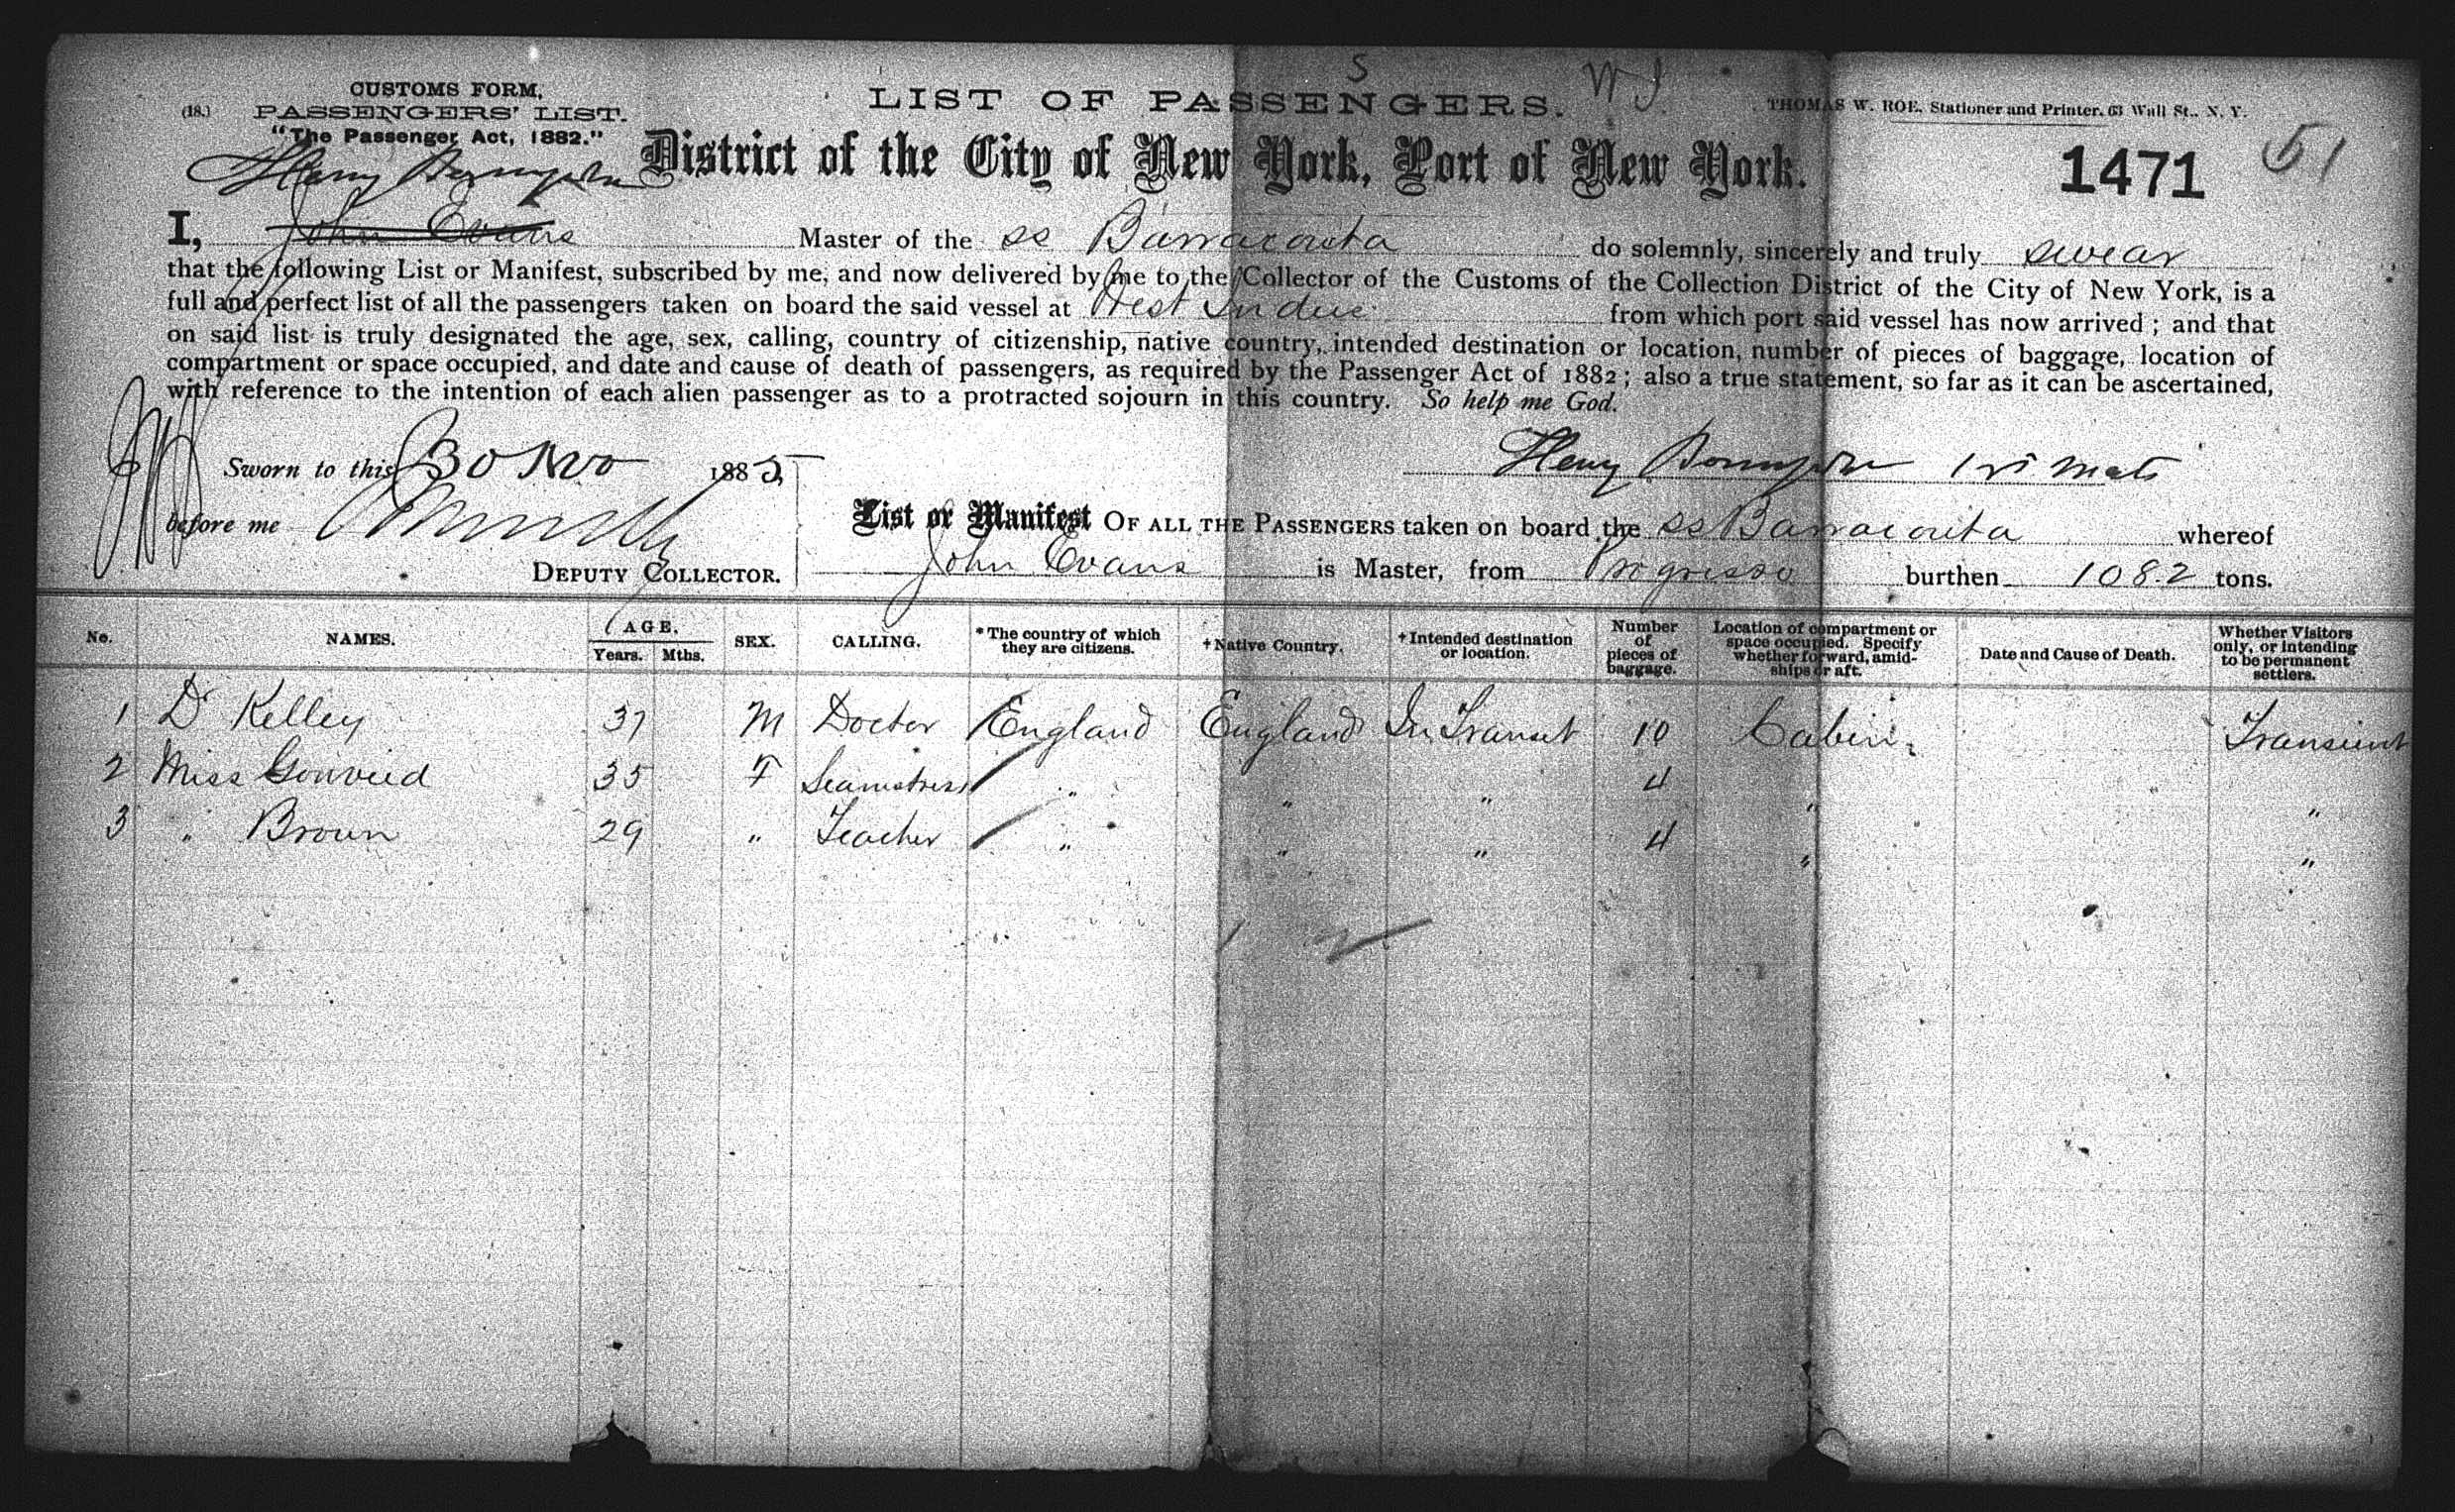 S
W I
CUSTOMS FORM.
(18.) PASSENGERS' LIST.
"The Passenger Act, 1882."
LIST OF PASSENGERS.
THOMAS W. ROE, Stationer and Printer, 63 Wall St., N. Y.
District of the City of New York, Port of New York.
1471
51
Henry
I, John Evans Master of the ss Barracouta do solemnly, sincerely and truly swear
that the following List or Manifest, subscribed by me, and now delivered by me to the Collector of the Customs of the Collection District of the City of New York, is a
full and perfect list of all the passengers taken on board the said vessel at West Indies from which port said vessel has now arrived; and that
on said list is truly designated the age, sex, calling, country of citizenship, native country, intended destination or location, number of pieces of baggage, location of
compartment or space occupied, and date and cause of death of passengers, as required by the Passenger Act of 1882; also a true statement, so far as it can be ascertained,
with reference to the intention of each alien passenger as to a protracted sojourn in this country. So help me God.
Sworn to this 30 Nov 1885
Henry 1st Mate
before me
DEPUTY COLLECTOR.
List or Manifest OF ALL THE PASSENGERS taken on board the ss Barracouta whereof
John Evans is Master, from Progresso burthen 1082 tons.
No. NAMES. AGE. Years. Mths. SEX. CALLING. *The country of which they are citizens. †Native Country. †Intended destination or location. Number of pieces of baggage. Location of compartment or space occupied. Specify whether forward, amidships or aft. Date and Cause of Death. Whether Visitors only, or intending to be permanent settlers.
1 Dr Kelley 37 M Doctor England England In Transit 10 Cabin Transient
2 Miss 35 F Seamstress " " " 4 " "
3 " Brown 29 " Teacher " " " 4 " "